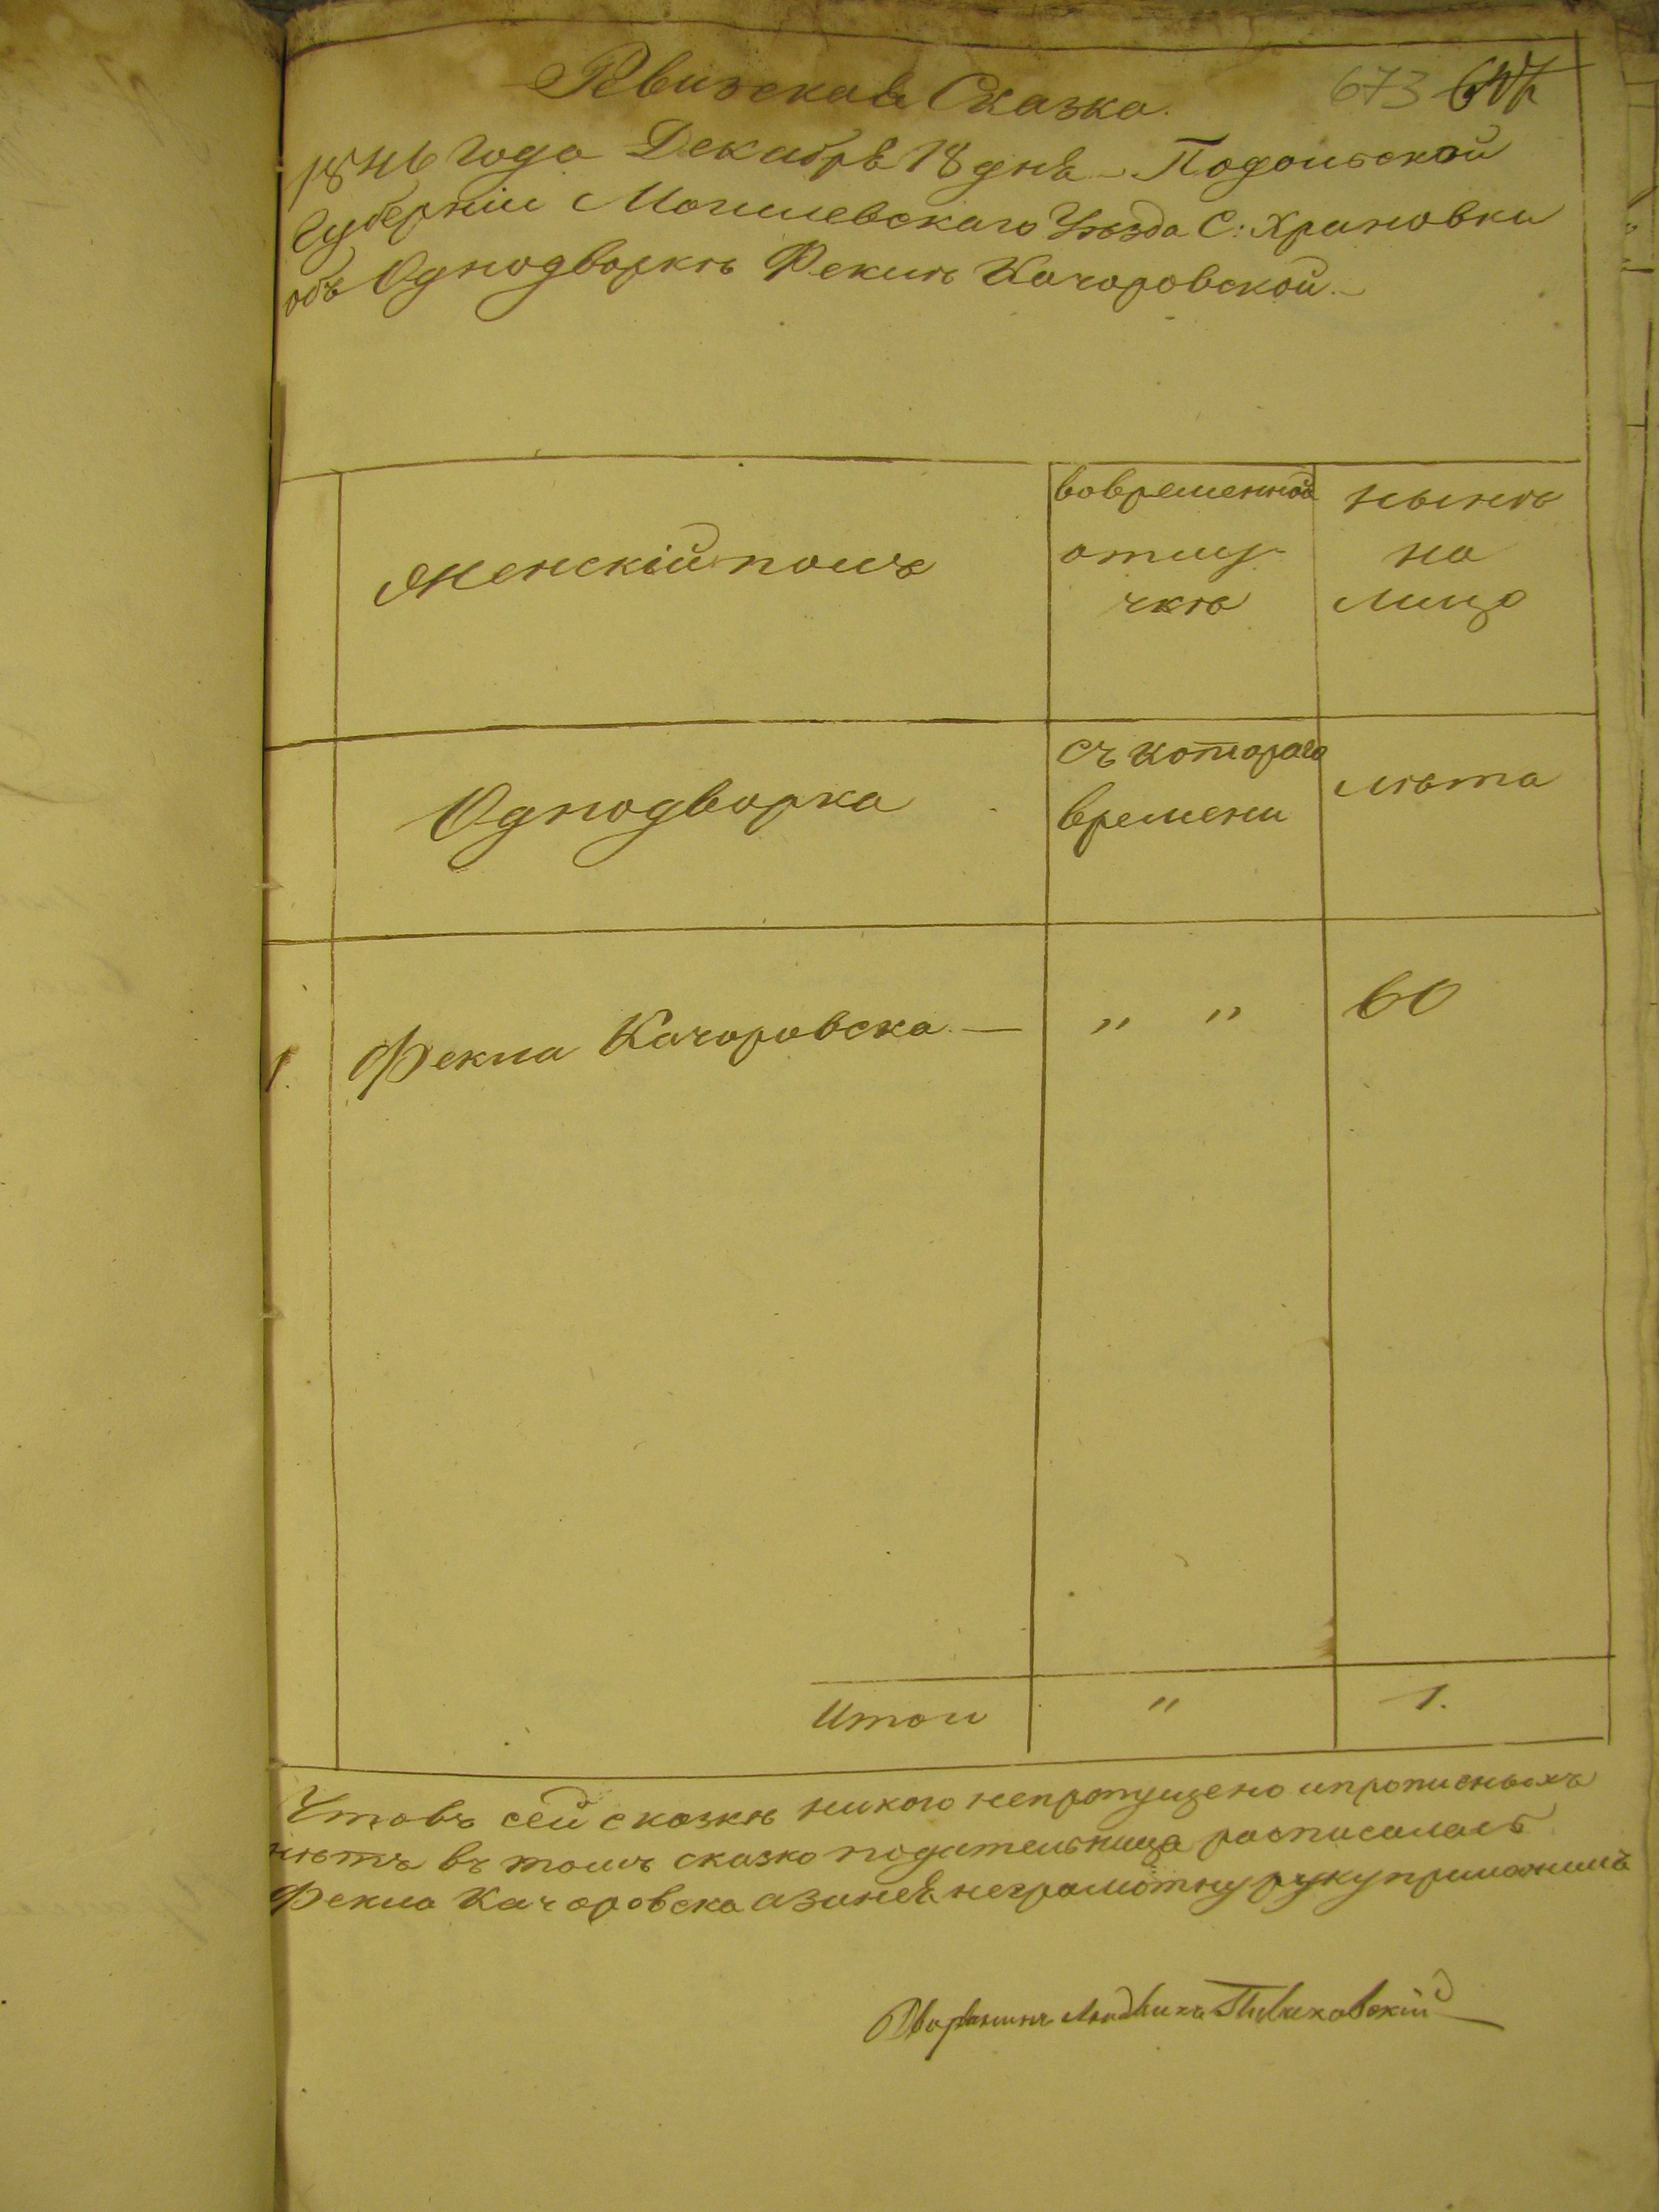 Ревизская Сказка. 673
1846 года Декабря 18 дня – Подольской
Губерніи Могилевскаго Уѣзда С: Храновки
объ Однодворкѣ Феклѣ Качоровской. –
Женскій полъ
вовременной
отлу-
чкѣ
нынѣ
на
лицо
Однодворка
съ котораго
времени
лѣта
1. Фекла Качоровска — „ „ 60
Итои „ 1.
Чтовъ сей сказкѣ никого непропущено ипрописныхъ
нѣтъ въ томъ сказко подательница расписалась
Фекла Качоровска азанея неграмотну руку приложилъ
Дворянинъ Людвихъ